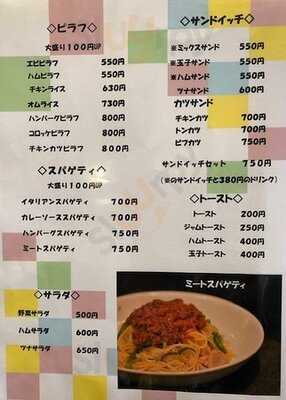 ◇ピラフ◇
大盛り１００円UP
エビピラフ 550円
ハムピラフ 550円
チキンライス 630円
オムライス 730円
ハンバーグピラフ 800円
コロッケピラフ 800円
チキンカツピラフ 800円
◇スパゲティ◇
大盛り１００円UP
イタリアンスパゲティ ７００円
カレーソーススパゲティ ７００円
ハンバーグスパゲティ ７５０円
ミートスパゲティ ７５０円
◇サラダ◇
野菜サラダ 500円
ハムサラダ 600円
ツナサラダ 650円
◇サンドイッチ◇
※ミックスサンド 550円
※玉子サンド 550円
※ハムサンド 550円
ツナサンド 600円
カツサンド
チキンカツ 700円
トンカツ 700円
ビフカツ 750円
サンドイッチセット ７５０円
(※のサンドイッチと380円のドリンク)
◇トースト◇
トースト 200円
ジャムトースト 250円
ハムトースト 400円
玉子トースト 400円
ミートスパゲティ